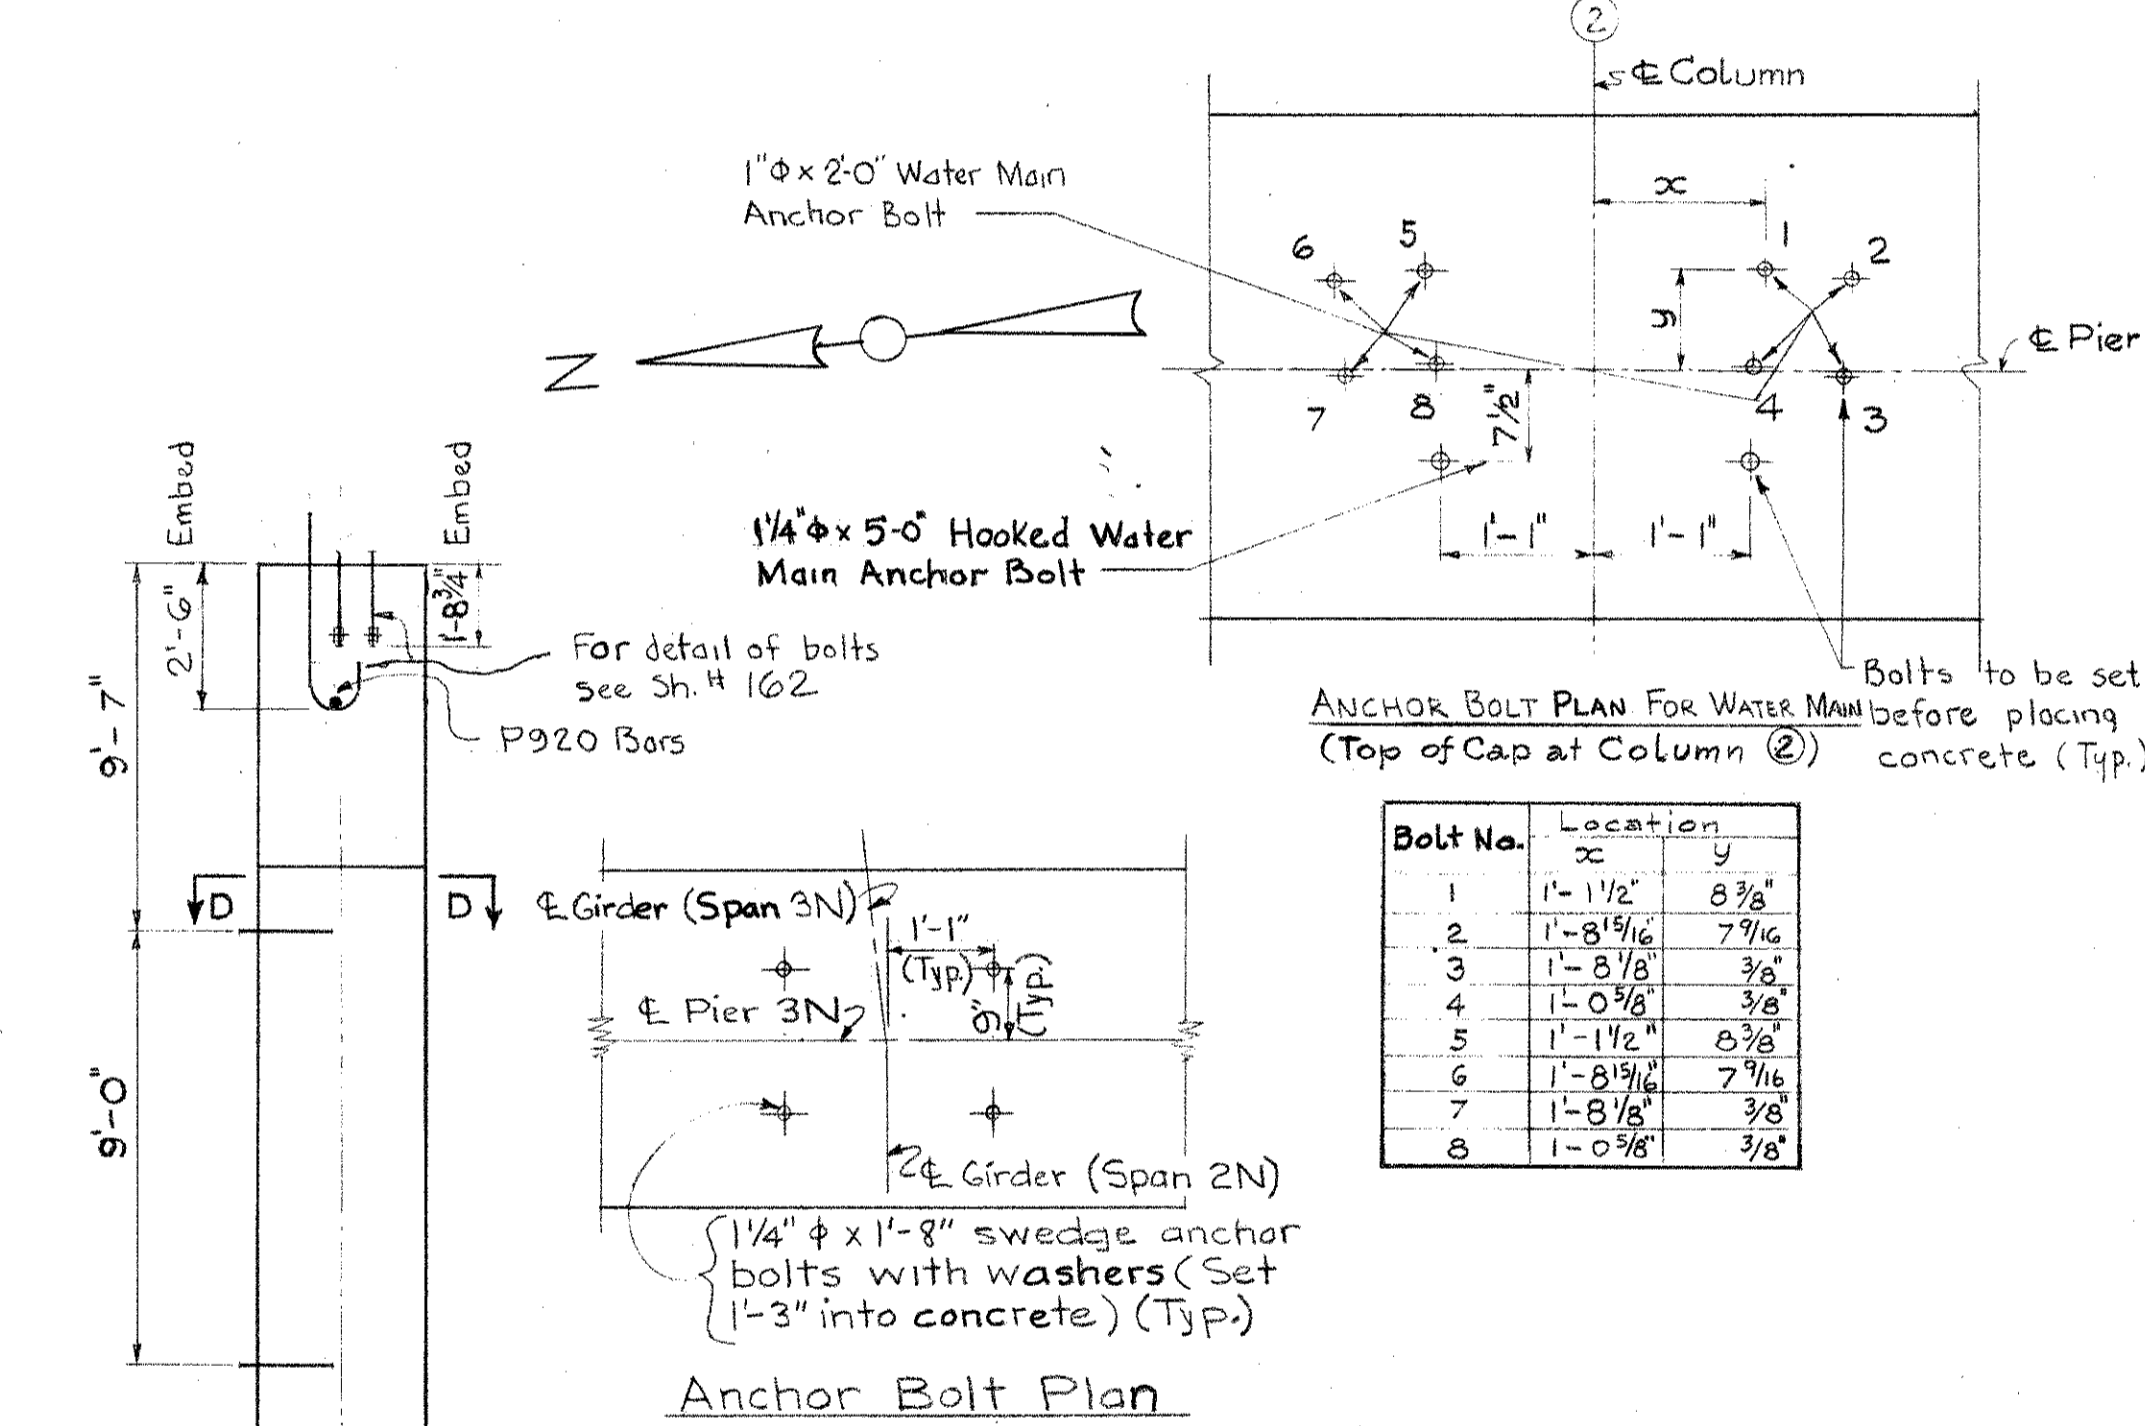 2
℄ Column
1"Φ x 2'-0" Water Main
Anchor Bolt
x
y
6
5
1
2
℄ Pier
N
7
8
4
3
7½"
1¼"Φ x 5'-0" Hooked Water
Main Anchor Bolt
1'-1"
1'-1"
Embed
Embed
2'-6"
1-8¾"
9'-7"
9'-0"
For detail of bolts
see Sh. # 162
P920 Bars
D
D
Bolts to be set
before placing
concrete (Typ.)
ANCHOR BOLT PLAN FOR WATER MAIN
(Top of Cap at Column ②)
Bolt No. Location
x y
1 1'-1 1/2" 8 3/8"
2 1'-8 15/16" 7 9/16
3 1'-8 1/8" 3/8"
4 1'-0 5/8" 3/8"
5 1'-1 1/2" 8 3/8"
6 1'-8 15/16" 7 9/16
7 1'-8 1/8" 3/8"
8 1-0 5/8" 3/8"
℄ Girder (Span 3N)
1'-1"
(Typ.)
9"
(Typ.)
℄ Pier 3N
℄ Girder (Span 2N)
1¼" Φ x 1'-8" swedge anchor
bolts with washers (Set
1'-3" into concrete) (Typ.)
Anchor Bolt Plan